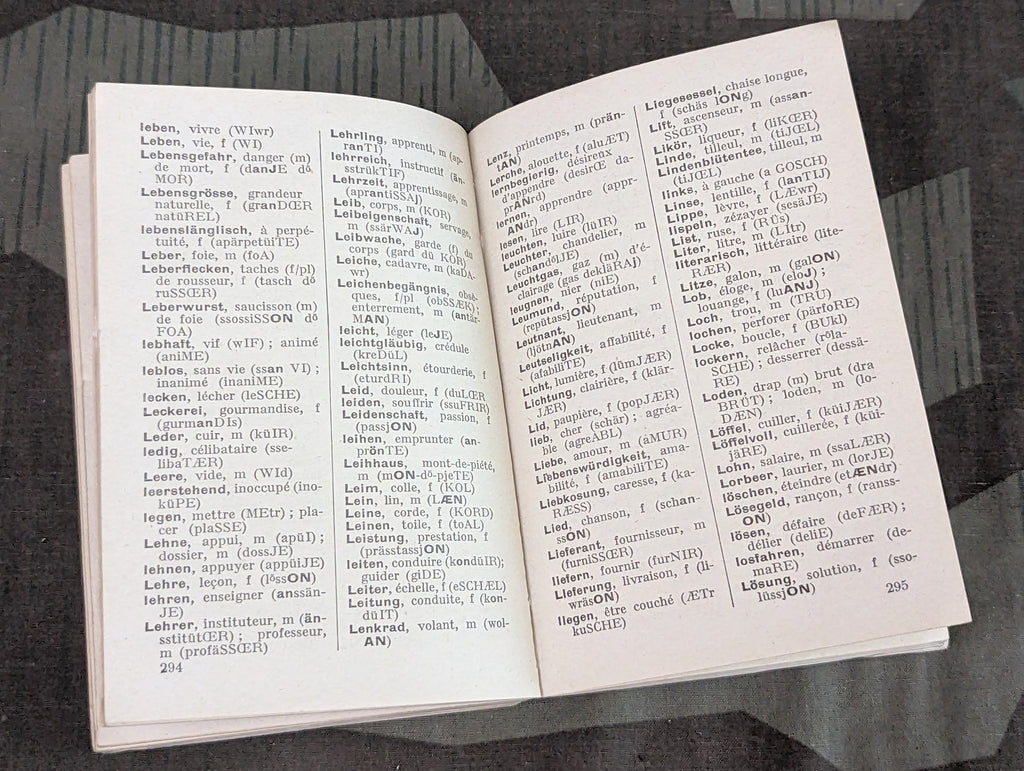 leben, vivre (WIwr)
Leben, vie, f (WI)
Lebensgefahr, danger (m)
de mort, f (danJE dô
MOR)
Lebensgrösse, grandeur
naturelle, f (granDŒR
natüREL)
lebenslänglisch, à perpé-
tuité, f (apärpetüiTE)
Leber, foie, m (foA)
Leberflecken, taches (f/pl)
de rousseur, f (tasch dô
ruSSŒR)
Leberwurst, saucisson (m)
de foie (ssossiSSON dô
FOA)
lebhaft, vif (wIF) ; animé
(aniME)
leblos, sans vie (ssan VI) ;
inanimé (inaniME)
lecken, lécher (leSCHE)
Leckerei, gourmandise, f
(gurmanDIs)
Leder, cuir, m (küIR)
ledig, célibataire (sse-
libaTÆR)
Leere, vide, m (WId)
leerstehend, inoccupé (ino-
küPE)
legen, mettre (MEtr) ; pla-
cer (plaSSE)
Lehne, appui, m (apüI) ;
dossier, m (dossJE)
lehnen, appuyer (appüiJE)
Lehre, leçon, f (lôssON)
lehren, enseigner (anssän-
JE)
Lehrer, instituteur, m (än-
sstitütŒR) ; professeur,
m (profäSSŒR)
294
Lehrling, apprenti, m (ap-
ranTI)
lehrreich, instructif (än-
sstrükTIF)
Lehrzeit, apprentissage, m
(aprantiSSAJ)
Leib, corps, m (KOR)
Leibeigenschaft, servage,
m (ssärWAJ)
Leibwache, garde (f) du
corps (gard dü KOR)
Leiche, cadavre, m (kaDA-
wr)
Leichenbegängnis, obsè-
ques, f/pl (obSSÆK) ;
enterrement, m (antär-
MAN)
leicht, léger (leJE)
leichtgläubig, crédule
(kreDüL)
Leichtsinn, étourderie, f
(eturdRI)
Leid, douleur, f (duLŒR
leiden, souffrir (ssuFRIR)
Leidenschaft, passion, f
(passjON)
leihen, emprunter (an-
prönTE)
Leihhaus, mont-de-piété,
m (mON-dô-pjeTE)
Leim, colle, f (KOL)
Lein, lin, m (LÆN)
Leine, corde, f (KORD)
Leinen, toile, f (toAL)
Leistung, prestation, f
(prässtassjON)
leiten, conduire (kondüIR);
guider (giDE)
Leiter, échelle, f (eSCHÆL)
Leitung, conduite, f (kon-
düIT)
Lenkrad, volant, m (wol-
AN)
Lenz, printemps, m (prän-
tAN)
Lerche, alouette, f (aluÆT)
lernbegierig, désireux
d'apprendre (desirŒ da-
prANrd)
lernen, apprendre (appr-
ANdr)
lesen, lire (LIR)
leuchten, luire (lüIR)
Leuchter, chandelier, m
(schandölJE)
Leuchtgas, gaz (m) d'é-
clairage (gas dekläRAJ)
leugnen, nier (niE)
Leumund, réputation, f
(repütassjON)
Leutnant, lieutenant, m
(ljötnAN)
Leutseligkeit, affabilité, f
(afabiliTE)
Licht, lumière, f (lümJÆR)
Lichtung, clairière, f (klär-
JÆR)
Lid, paupière, f (popJÆR)
lieb, cher (schär) ; agréa-
ble (agreABL)
Liebe, amour, m (AMUR)
Liebenswürdigkeit, ama-
bilité, f (amabiliTE)
Liebkosung, caresse, f (ka-
RÆSS)
Lied, chanson, f (schan-
ssON)
Lieferant, fournisseur, m
(furniSSŒR)
liefern, fournir (furNIR)
Lieferung, livraison, f (li-
wräsON)
liegen, être couché (ÆTr
kuSCHE)
Liegesessel, chaise longue,
f (schäs lONg)
Lift, ascenseur, m (assan-
SSŒR)
Likör, liqueur, f (liKŒR)
Linde, tilleul, m (tiJŒL)
Lindenblütentee, tilleul, m
(tiJŒL)
links, à gauche (a GOSCH)
Linse, lentille, f (lanTIJ)
Lippe, lèvre, f (LÆwr)
lispeln, zézayer (sesäJE)
List, ruse, f (RÜs)
Liter, litre, m (LItr)
literarisch, littéraire (lite-
RÆR)
Litze, galon, m (galON)
Lob, éloge, m (eloJ) ;
louange, f (luANJ)
Loch, trou, m (TRU)
lochen, perforer (pärfoRE)
Locke, boucle, f (BUkl)
lockern, relâcher (rôla-
SCHE) ; desserrer (dessä-
RE)
Loden, drap (m) brut (dra
BRÜT) ; loden, m (lo-
DÆN)
Löffel, cuiller, f (küiJÆR)
Löffelvoll, cuillerée, f (küi-
jäRE)
Lohn, salaire, m (ssaLÆR)
Lorbeer, laurier, m (lorJE)
löschen, éteindre (etÆNdr)
Lösegeld, rançon, f (ranss-
ON)
lösen, défaire (deFÆR) ;
délier (deliE)
losfahren, démarrer (de-
maRE)
Lösung, solution, f (sso-
lüssjON)
295